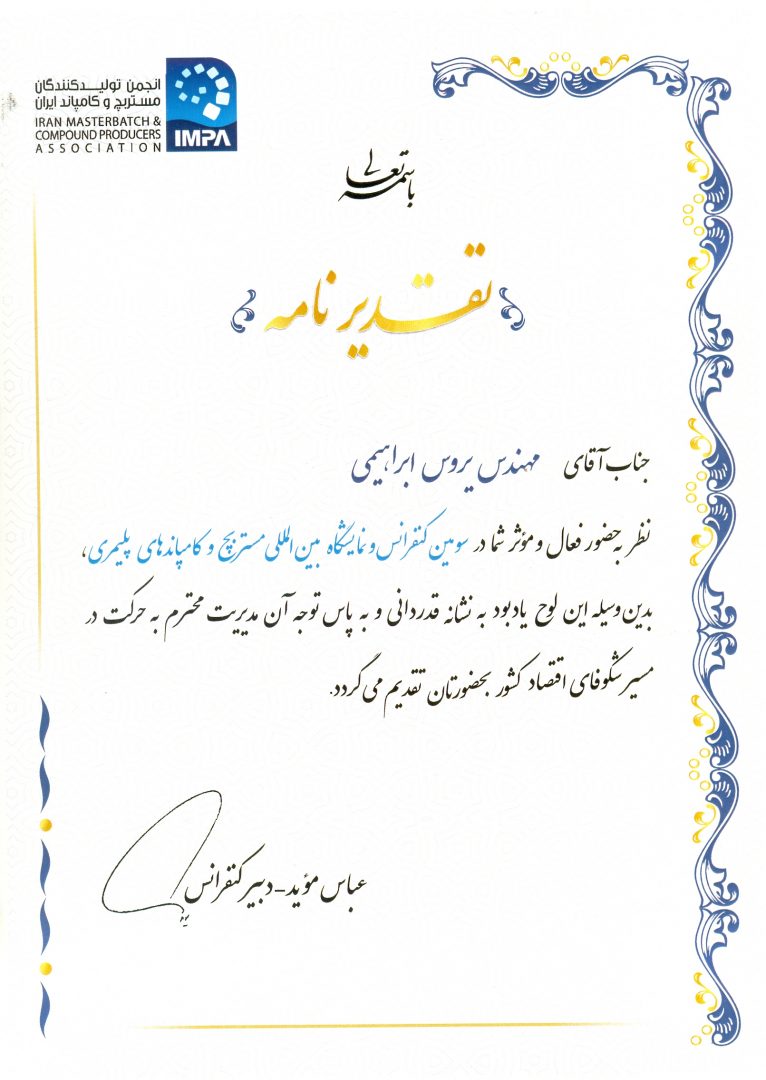 انجمن تولیدکنندگان
مستربچ و کامپاند ایران
IRAN MASTERBATCH &
COMPOUND PRODUCERS
ASSOCIATION
IMPA
باسمه تعالی
تقدیر نامه
جناب آقای مهندس یروس ابراهیمی
نظر به حضور فعال و مؤثر شما در سومین کنفرانس و نمایشگاه بین المللی مستربچ و کامپاندهای پلیمری،
بدین وسیله این لوح یادبود به نشانه قدردانی و به پاس توجه آن مدیریت محترم به حرکت در
مسیر شکوفای اقتصاد کشور بحضورتان تقدیم می گردد.
عباس مؤید - دبیر کنفرانس